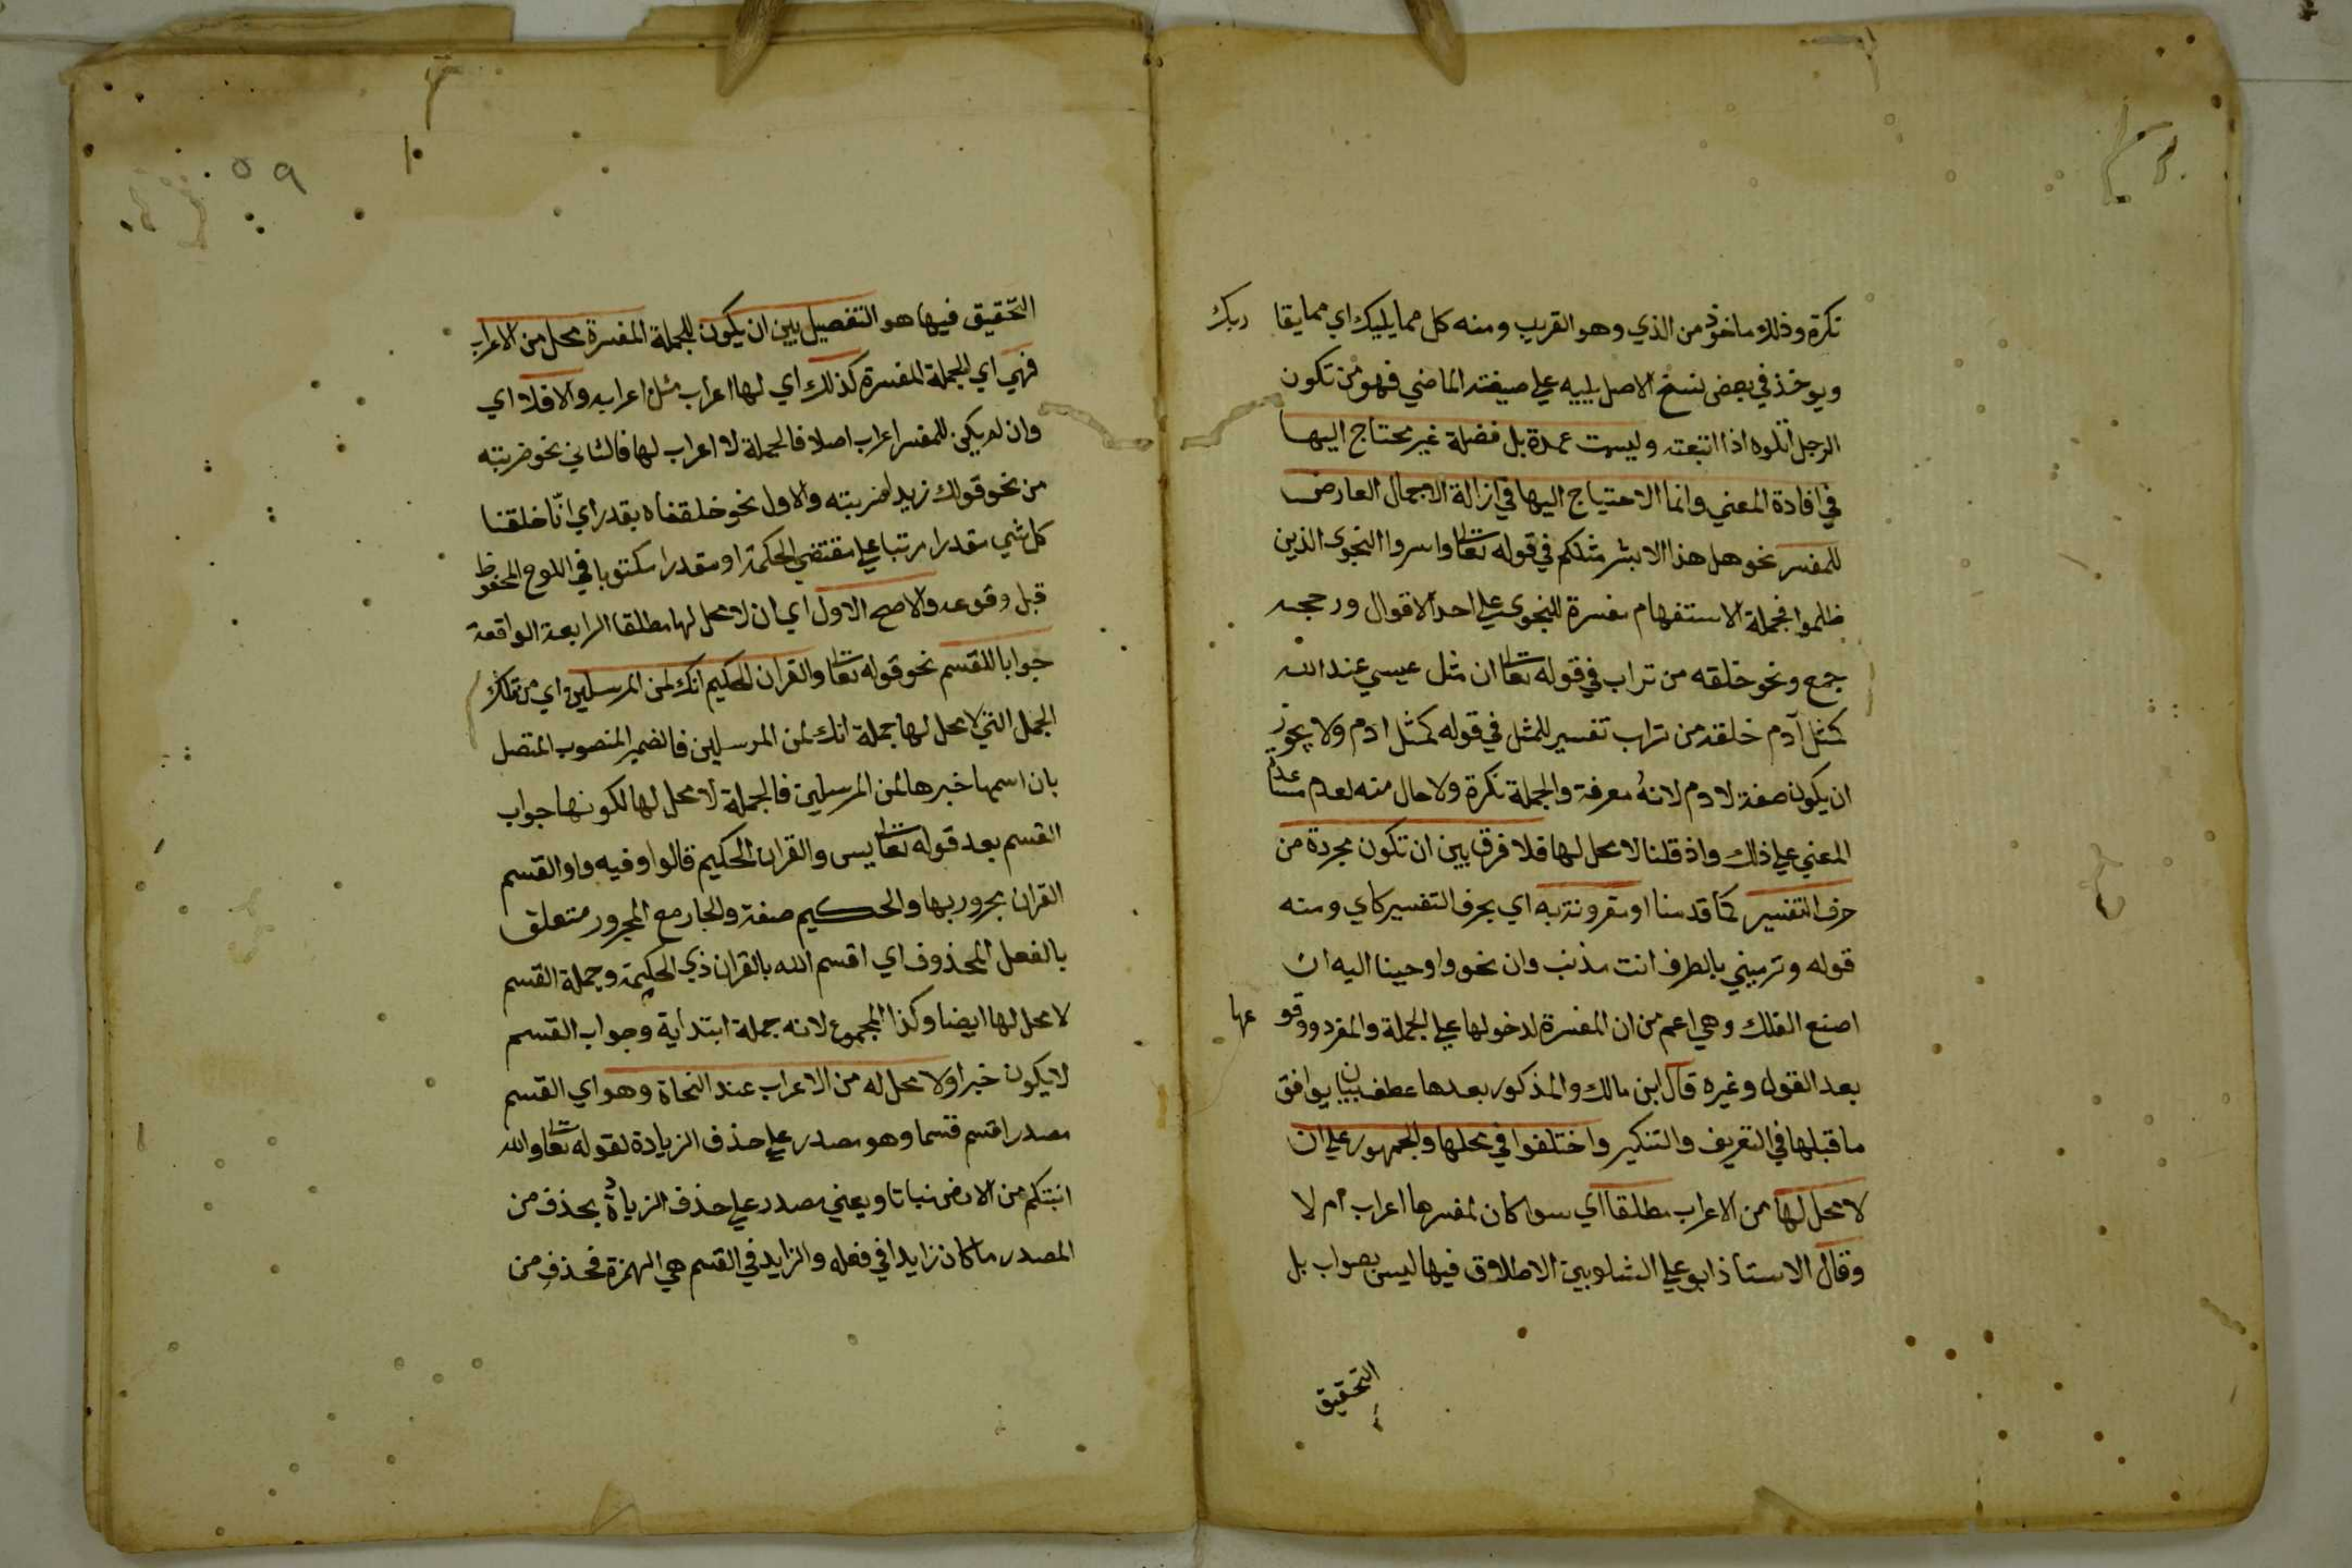 نكرة وذلك ماخوذ من الذي وهو القريب ومنه كل مما يليك اي مما يقا ربك
ويوخذ في بعض نسخ الاصل يليه علي صيغة الماضي فهو من تكون
الرجل اتلوه اذا اتبعته وليست عمدة بل فضلة غير محتاج اليها
في افادة المعني وانما الاحتياج اليها في ازالة الاجمال العارض
للمفسر نحو هل هذا الا بشر مثلكم في قوله تعا واسروا النجوى الذين
ظلموا فجملة الاستفهام مفسرة للنجوي علي احد الاقوال ورجحه
جمع ونحو خلقه من تراب في قوله تعا ان مثل عيسي عند الله
كمثل آدم خلقه من تراب تفسير للمثل في قوله كمثل ادم ولا يجوز
ان يكون صفة لادم لانه معرفة والجملة نكرة ولا حال منه لعدم
المعني علي ذلك واذ قلنا لا محل لها فلا فرق بين ان تكون مجردة من
حرف التفسير كما قدمنا او مقرونة به اي بحرف التفسير كاي ومنه
قوله وترمينني بالطرف انت مذنب وان نحو واوحينا اليه ان
اصنع الفلك وهي اعم من ان المفسرة لدخولها علي الجملة والمفرد ووقو عها
بعد القول وغيره قال ابن مالك والمذكور بعدها عطف بيان يوافق
ما قبلها في التعريف والتنكير واختلفوا في محلها والجمهور علي ان
لا محل لها من الاعراب مطلقا اي سوا كان لمفسرها اعراب ام لا
وقال الاستاذ ابو علي الشلوبين الاطلاق فيها ليس بصواب بل
التحقيق
٥٩
١٠
التحقيق فيها هو التفصيل بين ان يكون للجملة المفسرة محل من الاعراب
فهي اي الجملة المفسرة كذلك اي لها اعراب مثل اعرابه والا فلا اي
وان لم يكن للمفسر اعراب اصلا فالجملة لا اعراب لها فالثاني نحو ضربته
من نحو قولك زيدا ضربته والاول نحو خلقناه بقدر اي انّا خلقنا
كل شي مقدرا مرتبا علي مقتضي الحكمة او مقدرا مكتوبا في اللوح المحفوظ
قبل وقوعه والاصح الاول اي ان لا محل لها مطلقا الرابعة الواقعة
جوابا للقسم نحو قوله تعا والقران الحكيم انك لمن المرسلين اي من تلك
الجمل التي لا محل لها جملة انك لمن المرسلين فالضمير المنصوب المتصل
بان اسمها خبرها لمن المرسلين فالجملة لا محل لها لكونها جواب
القسم بعد قوله تعا يس والقران الحكيم قالوا وفيه واو القسم
القران مجرور بها والحكيم صفة والجار مع المجرور متعلق
بالفعل المحذوف اي اقسم الله بالقران ذي الحكمة وجملة القسم
لا محل لها ايضا وكذا المجموع لانه جملة ابتدائية وجواب القسم
لا يكون خبرا ولا محل له من الاعراب عند النحاة وهو اي القسم
مصدر اقسم قسما وهو مصدر علي حذف الزيادة لقوله تعا والله
انبتكم من الارض نباتا ويعني مصدر علي حذف الزيادة بحذف من
المصدر ما كان زايدا في فعله والزايد في القسم هي الهمزة فحذف من